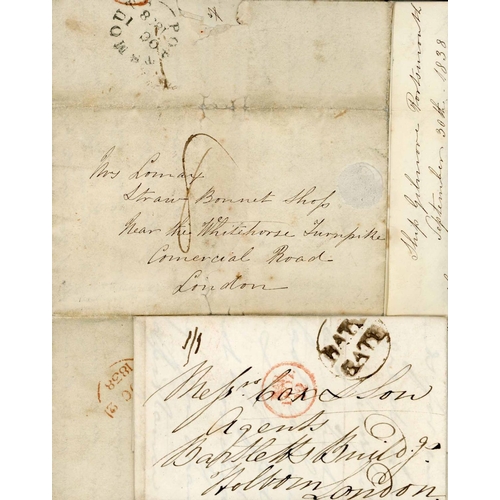 PORTSMOUTH
OC 1
Mrs Lomax
Straw Bonnet Shop
Near the Whitehorse Turnpike
Comercial Road
London
8
Ship Gilmore Portsmouth
September 30th 1838
1838
1/1
Messrs Cox & Son
Agents
Bartletts Buildgs
Holborn London